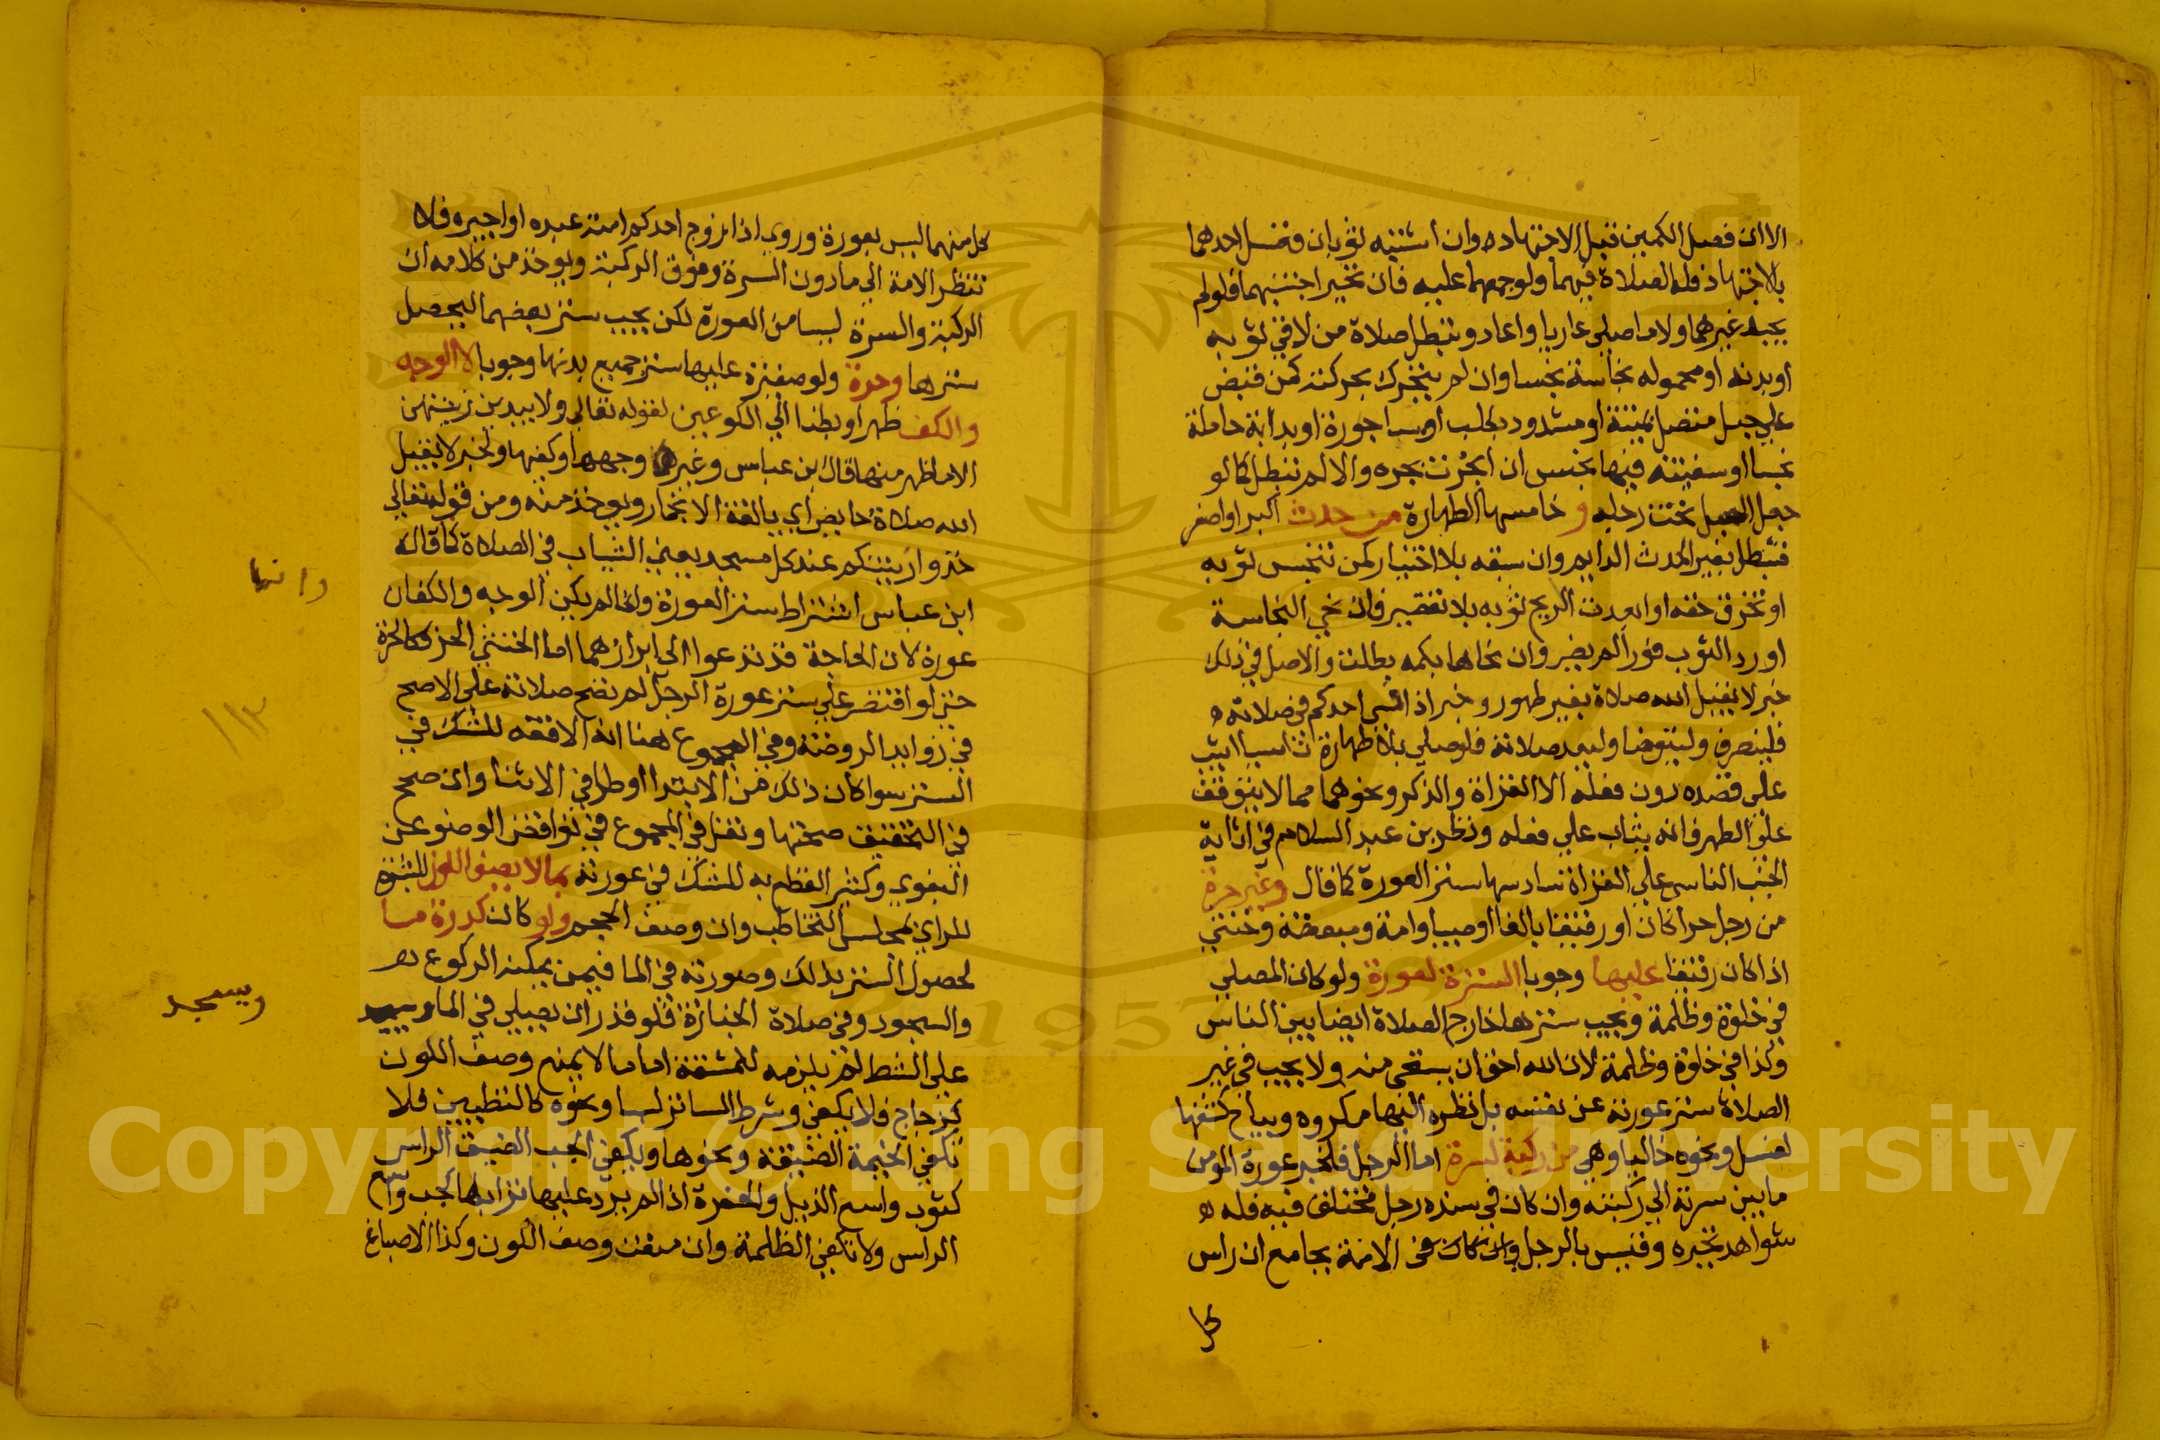 الا ان فصل الكمين قبل الاجتهاد وان اشتبه ثوبان فغسل احدهما
بالاجتهاد فله الصلاة فيهما ولو جمعهما عليه فان تحير اجتنبهما فلو لم
يجد غيرهما ولا ما صلي عاريا واعاد وتبطل صلاة من لاقي ثوبه
او بدنه او محموله نجاسة نجسا وان لم يتحرك بحركته كمن قبض
علي حبل متصل بميتة او مشدود بكلب او ساجورة او بدابة حاملة
نجسا او سفينة فيها نجس ان انجرت بجره والا لم تبطل كما لو
جعل الحبل تحت رجليه و خامسها الطهارة من حدث اكبر او اصغر
فتبطل بغير الحدث الدايم وان سبقه بلا اختيار كمن تنجس ثوبه
او تخرق خفه او ابعدت الريح ثوبه بلا تقصير فان نحي النجاسة
او رد الثوب فورا لم يضر وان نحاها بكمه بطلت والاصل في ذلك
خبر لا يقبل الله صلاة بغير طهور وخبر اذا فسي احدكم في صلاته
فلينصرف وليتوضا وليعد صلاته فلو صلي بلا طهارة ناسيا اثيب
علي قصده دون فعله الا القراة والذكر ونحوهما مما لا يتوقف
علي الطهر فانه يثاب علي فعله ونظر بن عبد السلام في اثابة
الجنب الناسي علي القراة سادسها ستر العورة كما قال وغير حرة
من رجل حرا كان او رقيقا بالغا او صبيا وامة ومبعضة وخنثي
اذا كان رقيقا عليها وجوبا السترة لعورة ولو كان المصلي
في خلوة وظلمة ويجب سترها خارج الصلاة ايضا بين الناس
وكذا في خلوة وظلمة لان الله احق ان يستحي منه ولا يجب في غير
الصلاة ستر عورته عن نفسه بل نظره اليها مكروه ويباح كشفها
لغسل ونحوه خاليا وهي من ركبة لسرة اما الرجل فلخبر عورة المومن
ما بين سرته الي ركبته وان كان في سنده رجل مختلف فيه فله
شواهد تجبره وقيس بالرجل وان كان في الامة بجامع ان راس
كل
كل منهما ليس بعورة وروي اذا زوج احدكم امته عبده او اجيره فلا
تنظر الامة الي ما دون السرة وفوق الركبة ويوخذ من كلامه ان
الركبة والسرة ليسا من العورة لكن يجب ستر بعضهما ليحصل
سترها وحرة ولو صغيرة عليها ستر جميع بدنها وجوبا لا الوجه
والكف ظهرا وبطنا الي الكوعين لقوله تعالي ولا يبدين زينتهن
الا ما ظهر منها قال ابن عباس وغيره وجهها وكفيها ولخبر لا يقبل
الله صلاة حايض اي بالغة الا بخمار ويوخذ منه ومن قوله تعالي
خذوا زينتكم عند كل مسجد يعني الثياب في الصلاة كما قاله
ابن عباس اشتراط ستر العورة وانما لم يكن الوجه والكفان
عورة لان الحاجة قد تدعوا الي ابرازهما اما الخنثي الحر فكالحرة
حتي لو اقتصر علي ستر عورة الرجل لم تصح صلاته علي الاصح
في زوايد الروضة وفي المجموع هنا انه الافقه للشك في
الستر سوا كان ذلك من الابتدا او طرا في الاثنا وان صحح
في التحقيق صحتها ونقل في المجموع في نواقض الوضو عن
البغوي وكثير القطع به للشك في عورته بما لا يصف اللون للبشرة
للراي لمجلس التخاطب وان وصف الحجم ولو كان كدرة ما
لحصول الستر بذلك وصورته في الما فيمن يمكنه الركوع
والسجود وفي صلاة الجنازة فلو قدر ان يصلي في الما
علي الشط لم يلزمه للمشقة اما ما لا يمنع وصف اللون
كزجاج فلا يكفي وشرط الساتر لبسا ونحوه كالتطيين فلا
تكفي الخيمة الضيقة ونحوها ويكفي الجب الضيق الراس
كثوب واسع الذيل والحفرة اذا لم يرد عليها ترابها كجب واسع
الراس ولا تكفي الظلمة وان منعت وصف اللون وكذا الاصباغ
وانها
١١٣
ويسجد
1957
Copyright © King Saud University